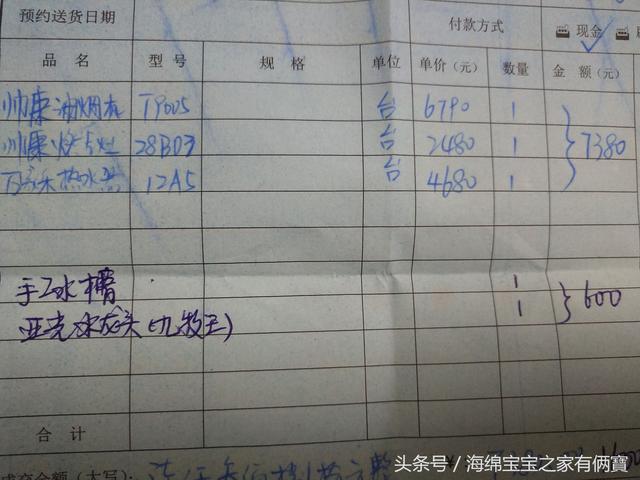 预约送货日期 付款方式 现金
品名 型号 规格 单位 单价(元) 数量 金额(元)
帅康油烟机 T9005 台 6790 1
帅康灶 28B03 台 2480 1 7380
万家乐热水器 12A5 台 4680 1
手工水槽 1
亚克水龙头(九牧王) 1 600
合计
成交金额(大写):
头条号/海绵宝宝之家有俩寶